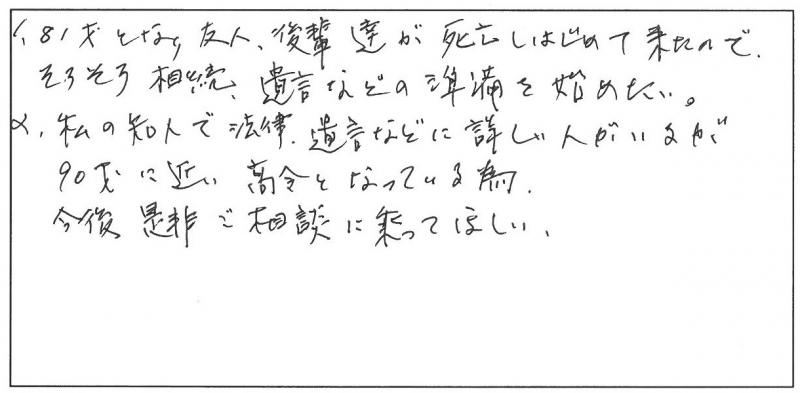 1、81才となり友人、後輩達が死亡しはじめて来たので、
そろそろ相続、遺言などの準備を始めたい。
2、私の知人で法律、遺言などに詳しい人がいるが
90才に近い高令となっている為、
今後是非ご相談に乗ってほしい、